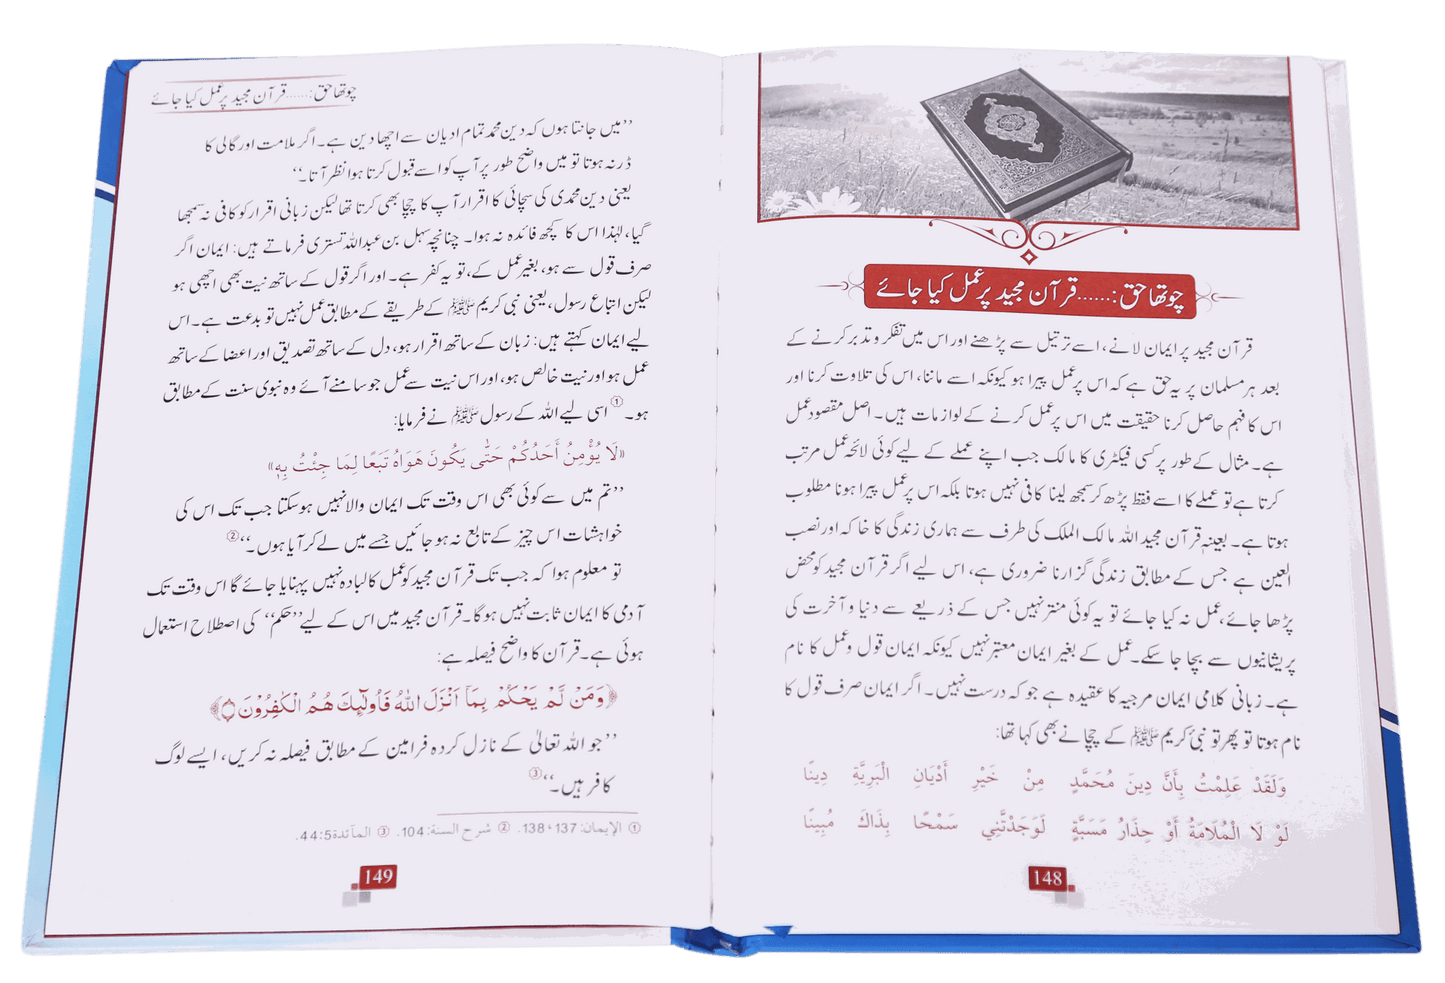 چوتھا حق:......قرآن مجید پر عمل کیا جائے
قرآن مجید پر ایمان لانے، اسے ترتیل سے پڑھنے اور اس میں تفکر و تدبر کرنے کے
بعد ہر مسلمان پر یہ حق ہے کہ اس پر عمل پیرا ہو کیونکہ اسے ماننا، اس کی تلاوت کرنا اور
اس کا فہم حاصل کرنا حقیقت میں اس پر عمل کرنے کے لوازمات ہیں۔ اصل مقصود عمل
ہے۔ مثال کے طور پر کسی فیکٹری کا مالک جب اپنے عملے کے لیے کوئی لائحہ عمل مرتب
کرتا ہے تو عملے کا اسے فقط پڑھ کر سمجھ لینا کافی نہیں ہوتا بلکہ اس پر عمل پیرا ہونا مطلوب
ہوتا ہے۔ بعینہٖ قرآن مجید اللہ مالک الملک کی طرف سے ہماری زندگی کا خاکہ اور نصب
العین ہے جس کے مطابق زندگی گزارنا ضروری ہے، اس لیے اگر قرآن مجید کو محض
پڑھا جائے، عمل نہ کیا جائے تو یہ کوئی منتر نہیں جس کے ذریعے سے دنیا و آخرت کی
پریشانیوں سے بچا جا سکے۔ عمل کے بغیر ایمان معتبر نہیں کیونکہ ایمان قول و عمل کا نام
ہے۔ زبانی کلامی ایمان مرجیہ کا عقیدہ ہے جو کہ درست نہیں۔ اگر ایمان صرف قول کا
نام ہوتا تو پھر تو نبیٔ کریم ﷺ کے چچا نے بھی کہا تھا:
وَلَقَدْ عَلِمْتُ بِأَنَّ دِينَ مُحَمَّدٍ مِنْ خَيْرِ أَدْيَانِ الْبَرِيَّةِ دِينًا
لَوْ لَا الْمُلَامَةُ أَوْ حِذَارُ مَسَبَّةٍ لَوَجَدْتَّنِي سَمْحًا بِذَاكَ مُبِينًا
148
چوتھا حق:......قرآن مجید پر عمل کیا جائے
’’میں جانتا ہوں کہ دین محمد تمام ادیان سے اچھا دین ہے۔ اگر ملامت اور گالی کا
ڈر نہ ہوتا تو میں واضح طور پر آپ کو اسے قبول کرتا ہوا نظر آتا۔‘‘
یعنی دین محمدی کی سچائی کا اقرار آپ کا چچا بھی کرتا تھا لیکن زبانی اقرار کو کافی نہ سمجھا
گیا، لہٰذا اس کا کچھ فائدہ نہ ہوا۔ چنانچہ سہل بن عبداللہ تستری فرماتے ہیں: ایمان اگر
صرف قول سے ہو، بغیر عمل کے، تو یہ کفر ہے۔ اور اگر قول کے ساتھ نیت بھی اچھی ہو
لیکن اتباع رسول، یعنی نبی کریم ﷺ کے طریقے کے مطابق عمل نہیں تو بدعت ہے۔ اس
لیے ایمان کہتے ہیں: زبان کے ساتھ اقرار ہو، دل کے ساتھ تصدیق اور اعضا کے ساتھ
عمل ہو اور نیت خالص ہو، اور اس نیت سے عمل جو سامنے آئے وہ نبوی سنت کے مطابق
ہو۔① اسی لیے اللہ کے رسول ﷺ نے فرمایا:
«لَا يُؤْمِنُ أَحَدُكُمْ حَتّٰى يَكُونَ هَوَاهُ تَبَعًا لِمَا جِئْتُ بِهٖ»
’’تم میں سے کوئی بھی اس وقت تک ایمان والا نہیں ہو سکتا جب تک اس کی
خواہشات اس چیز کے تابع نہ ہو جائیں جسے میں لے کر آیا ہوں۔‘‘②
تو معلوم ہوا کہ جب تک قرآن مجید کو عمل کا لبادہ نہیں پہنایا جائے گا اس وقت تک
آدمی کا ایمان ثابت نہیں ہوگا۔ قرآن مجید میں اس کے لیے ’’حکم‘‘ کی اصطلاح استعمال
ہوئی ہے۔ قرآن کا واضح فیصلہ ہے:
﴿وَمَنْ لَّمْ يَحْكُمْ بِمَآ اَنْزَلَ اللّٰهُ فَاُولٰٓئِكَ هُمُ الْكٰفِرُوْنَ﴾
’’جو اللہ تعالیٰ کے نازل کردہ فرامین کے مطابق فیصلہ نہ کریں، ایسے لوگ
کافر ہیں۔‘‘③
① الإيمان: 137، 138. ② شرح السنة: 104. ③ المآئدة 44:5.
149